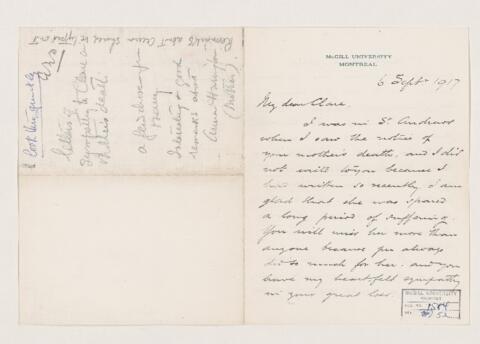 McGILL UNIVERSITY
MONTREAL
6 Sept. 1917
My dear Clare,
I was in St. Andrews
when I saw the notice of
your mother's death, and I did
not write to you because I
had written so recently. I am
glad that she was spared
a long period of suffering.
You will miss her more than
anyone because you always
did so much for her. and you
have my heartfelt sympathy
in your great loss.
McGILL UNIVERSITY
ACC. NO. 1584
REF.
Remarks about Anna should be typed out
Letter of
sympathy to Clare on
mother's death
a kindness for
Harry
Interesting & good
remarks about
Anna Harrington
(Mother)